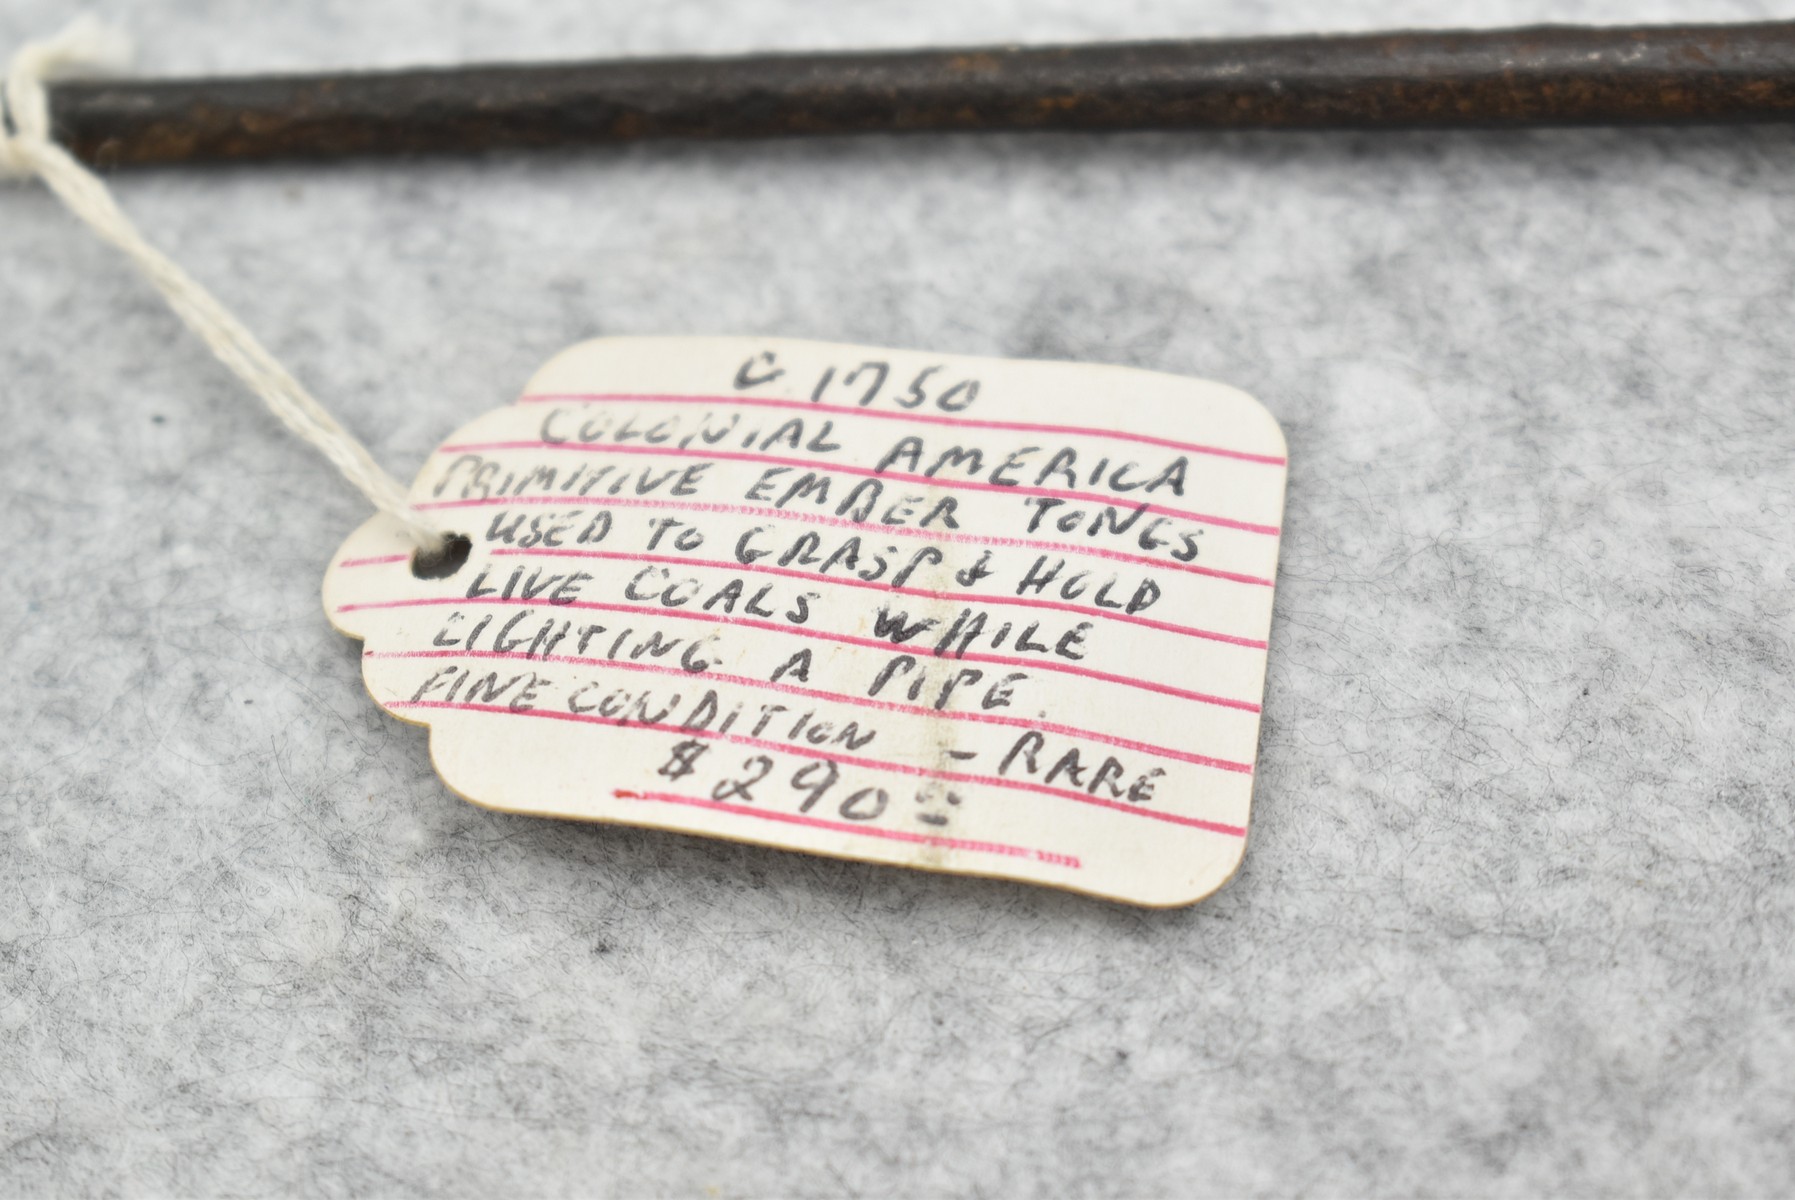 C 1750
COLONIAL AMERICA
PRIMITIVE EMBER TONGS
USED TO GRASP & HOLD
LIVE COALS WHILE
LIGHTING A PIPE.
FINE CONDITION - RARE
$290 00